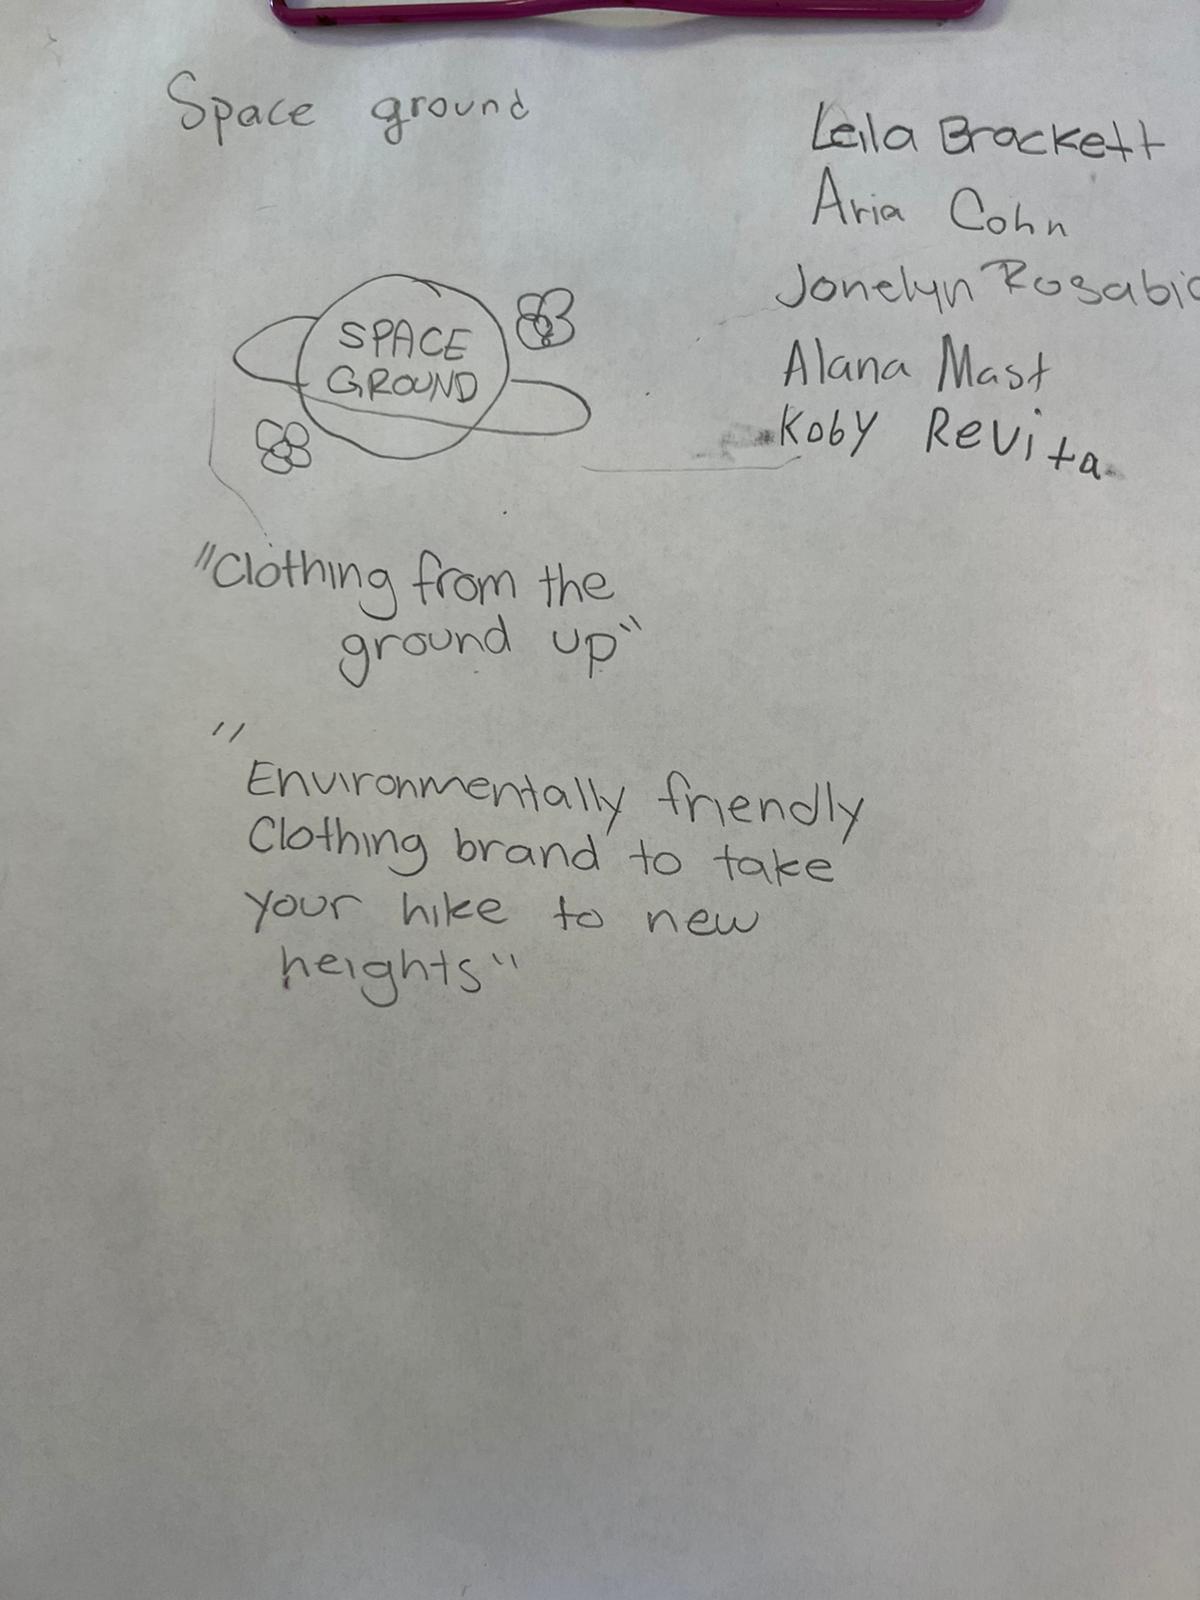 Space ground
Leila Brackett
Aria Cohn
Jonelyn
Alana Mast
Koby Revita
SPACE
GROUND
"Clothing from the
ground up"
"
Environmentally friendly
Clothing brand to take
your hike to new
heights"